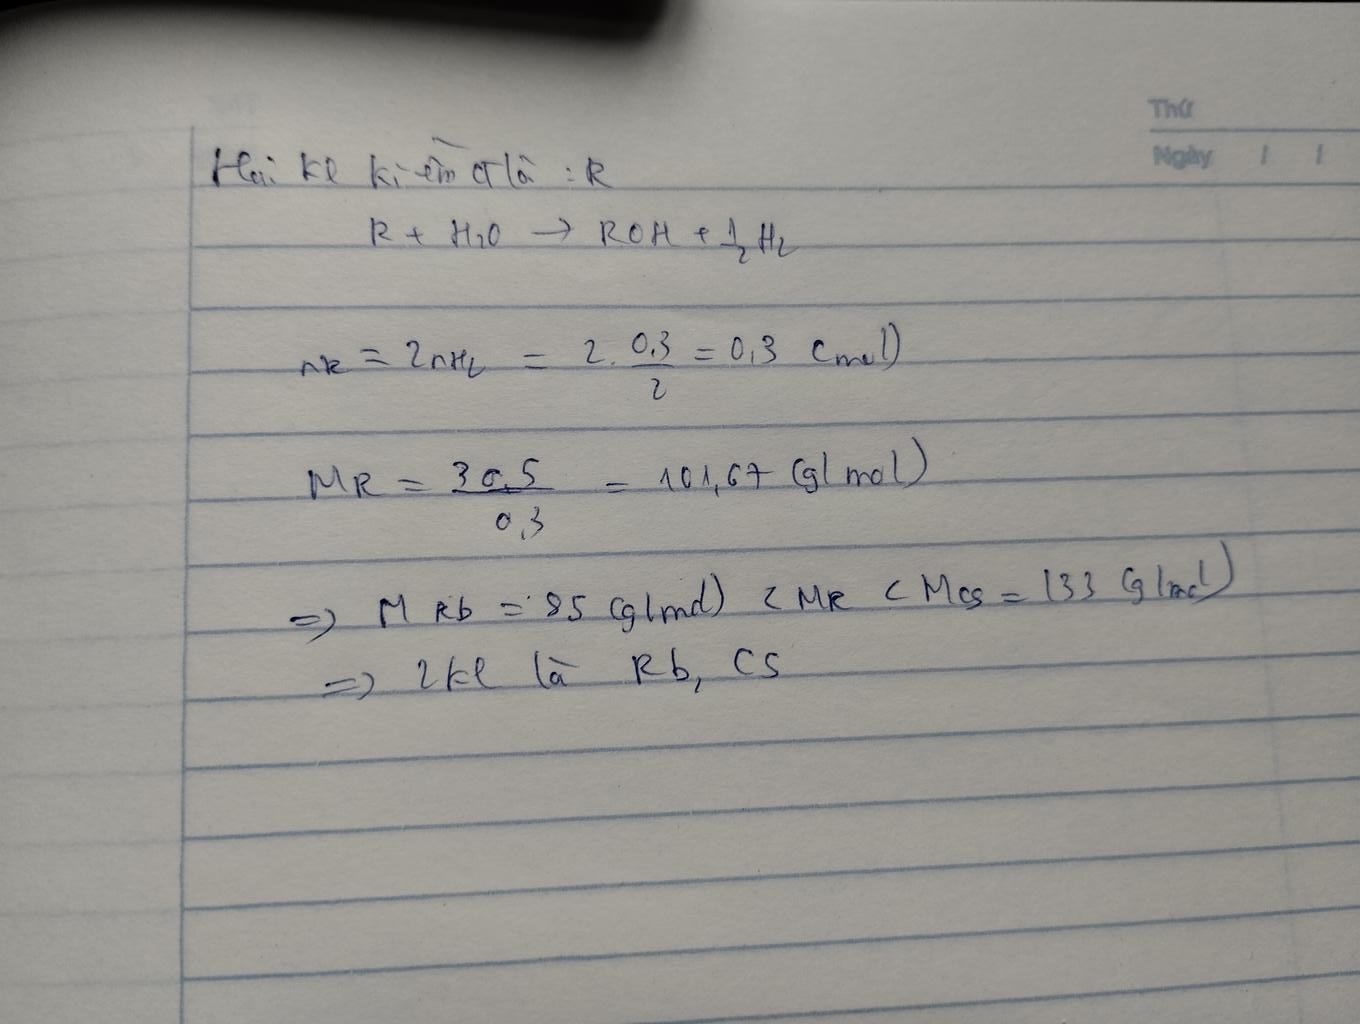 Thứ
Ngày / /
Hai kl kiềm là : R
R + H2O → ROH + 1/2 H2
nR = 2nH2 = 2. 0,3/2 = 0,3 (mol)
MR = 30,5/0,3 = 101,67 (g/mol)
=> M Rb = 85 (g/mol) < MR < MCs = 133 (g/mol)
=> 2kl là Rb, Cs